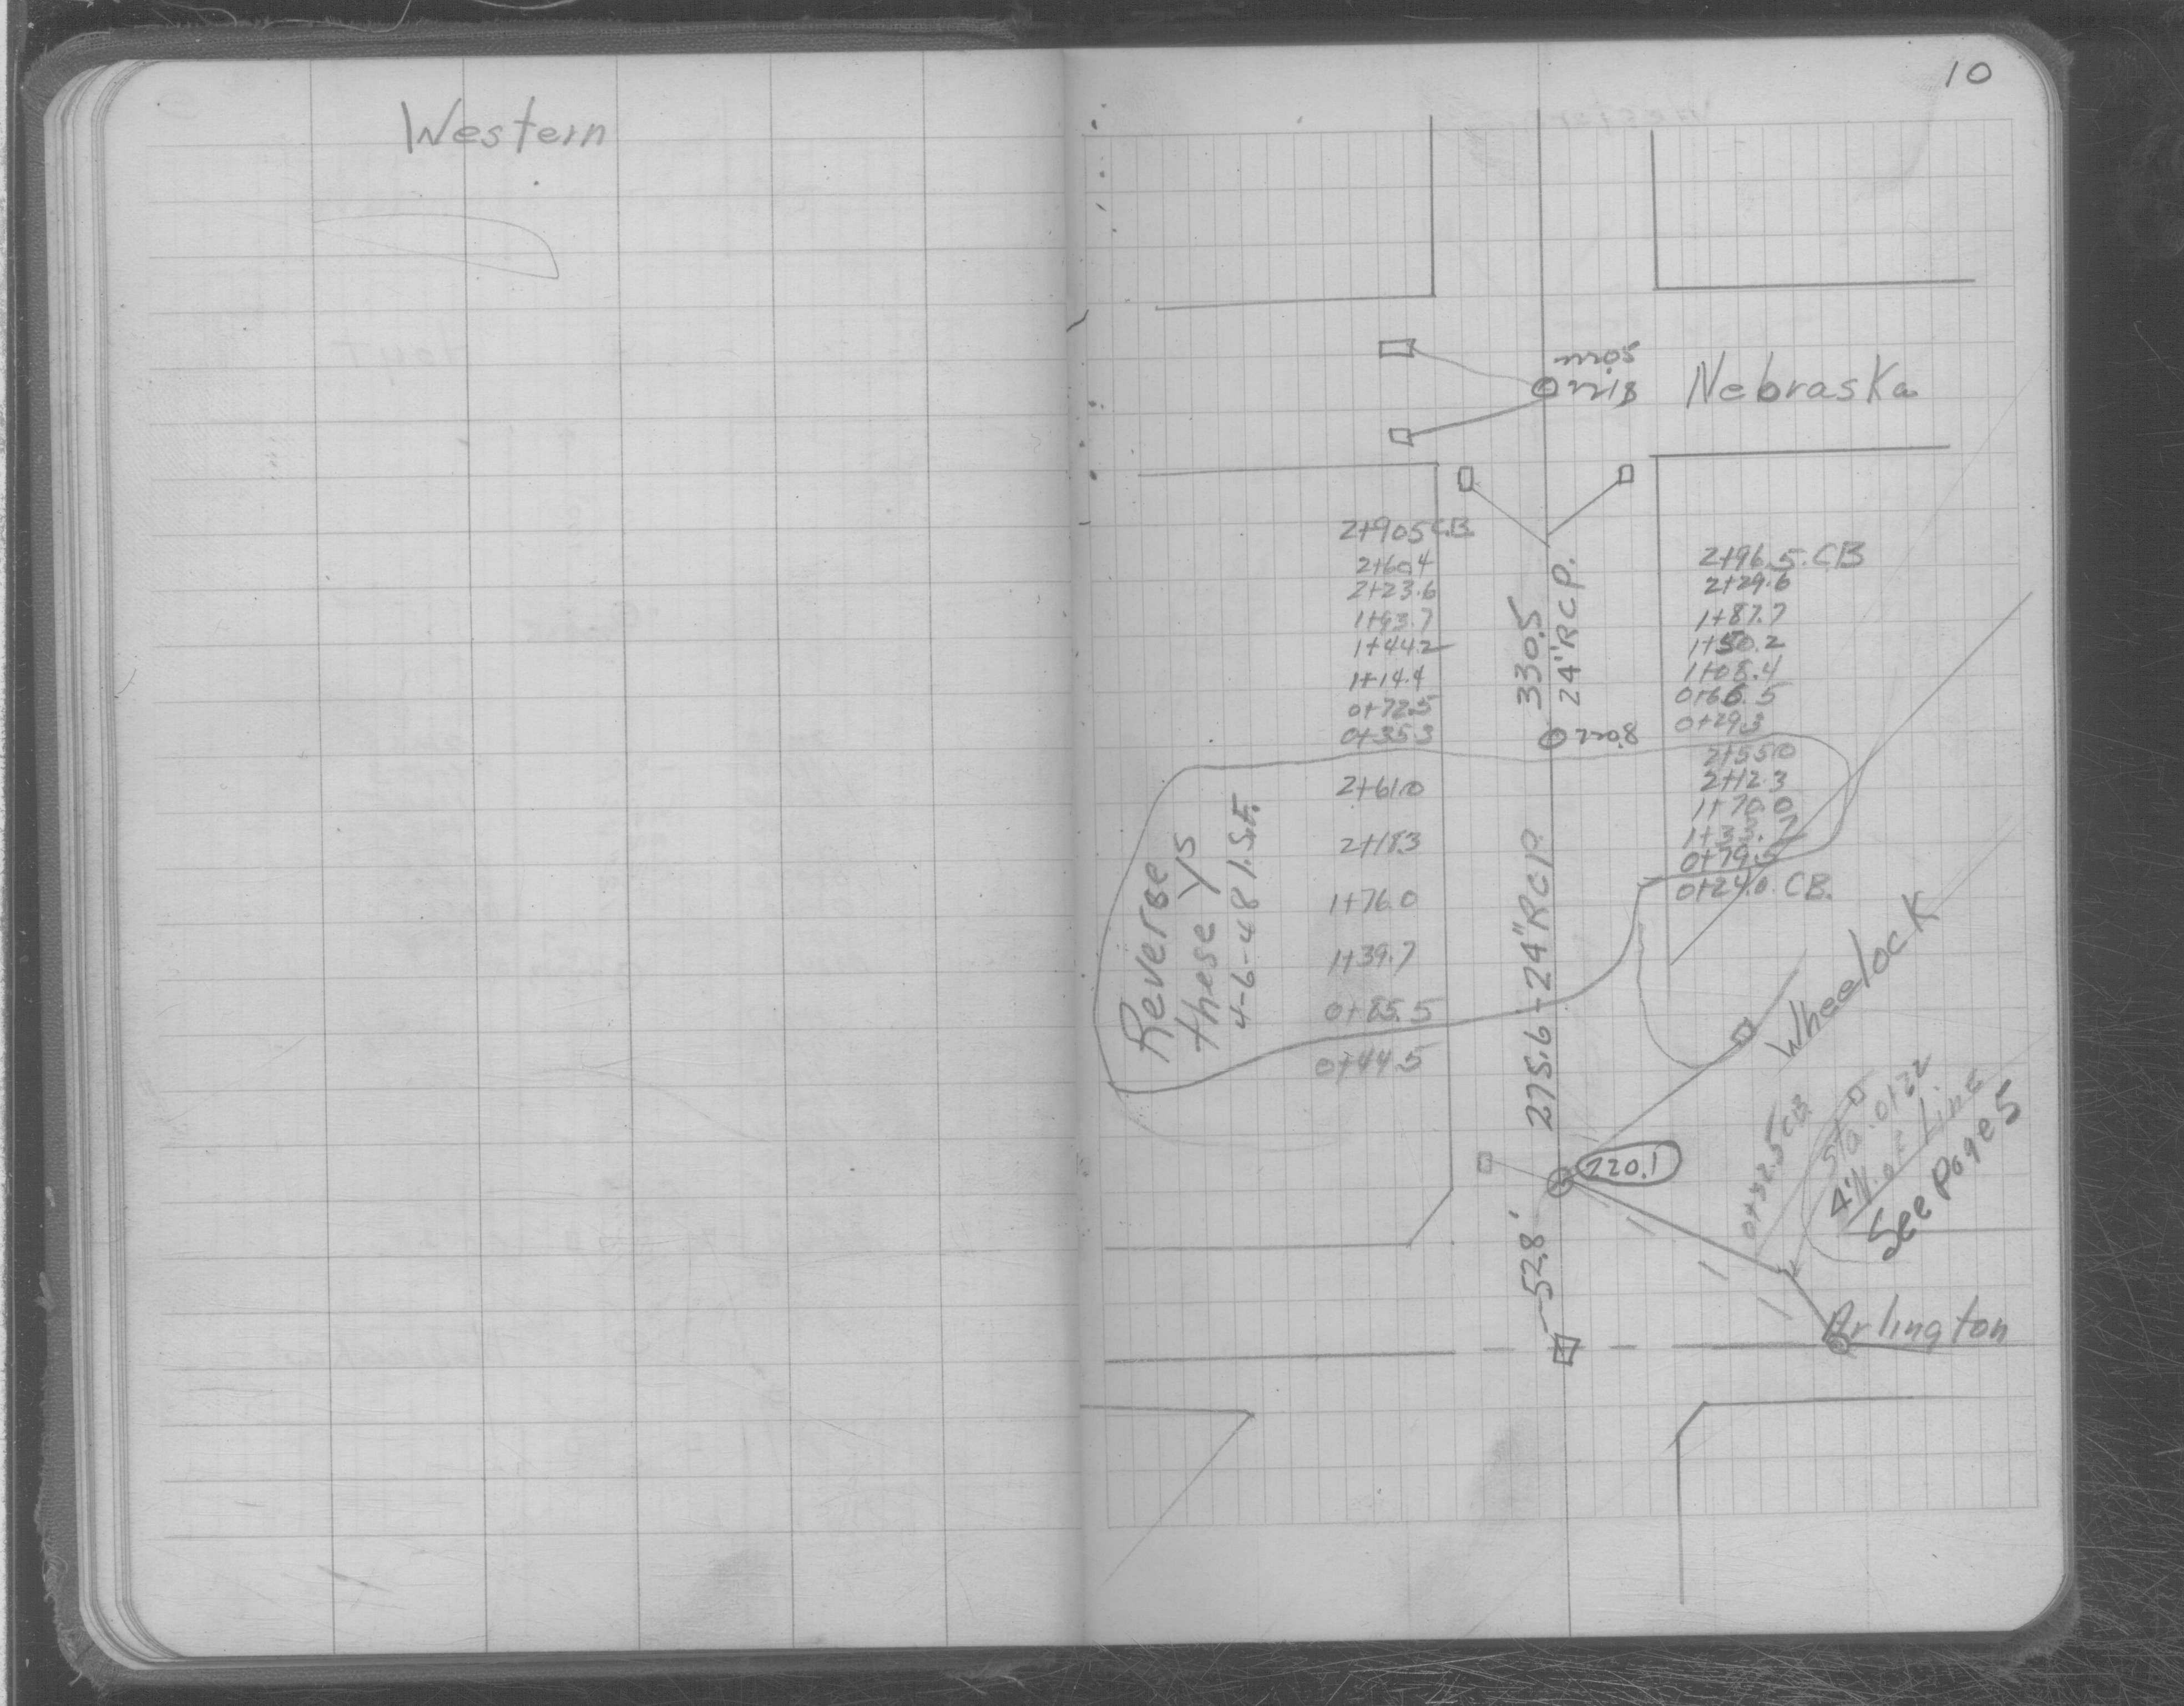 Western
10
Nebraska
2+90.5 C.B.
2+60.4
2+23.6
1+93.7
1+44.2
1+14.4
0+72.5
0+35.3
2+61.0
2+18.3
1+76.0
1+39.7
0+85.5
0+44.5
Reverse
these Ys
4-6-48 
330.5
24" RCP.
275.6-24" RCP.
52.8'
2+96.5 CB
2+29.6
1+87.7
1+50.2
1+08.4
0+66.5
0+29.3
2+55.0
2+12.3
1+70.0
1+33.7
0+79.5
0+24.0 CB.
Wheelock
220.1
0+32.5 CB
Sta. 0+22
4' N. of Line
See Page 5
Arlington